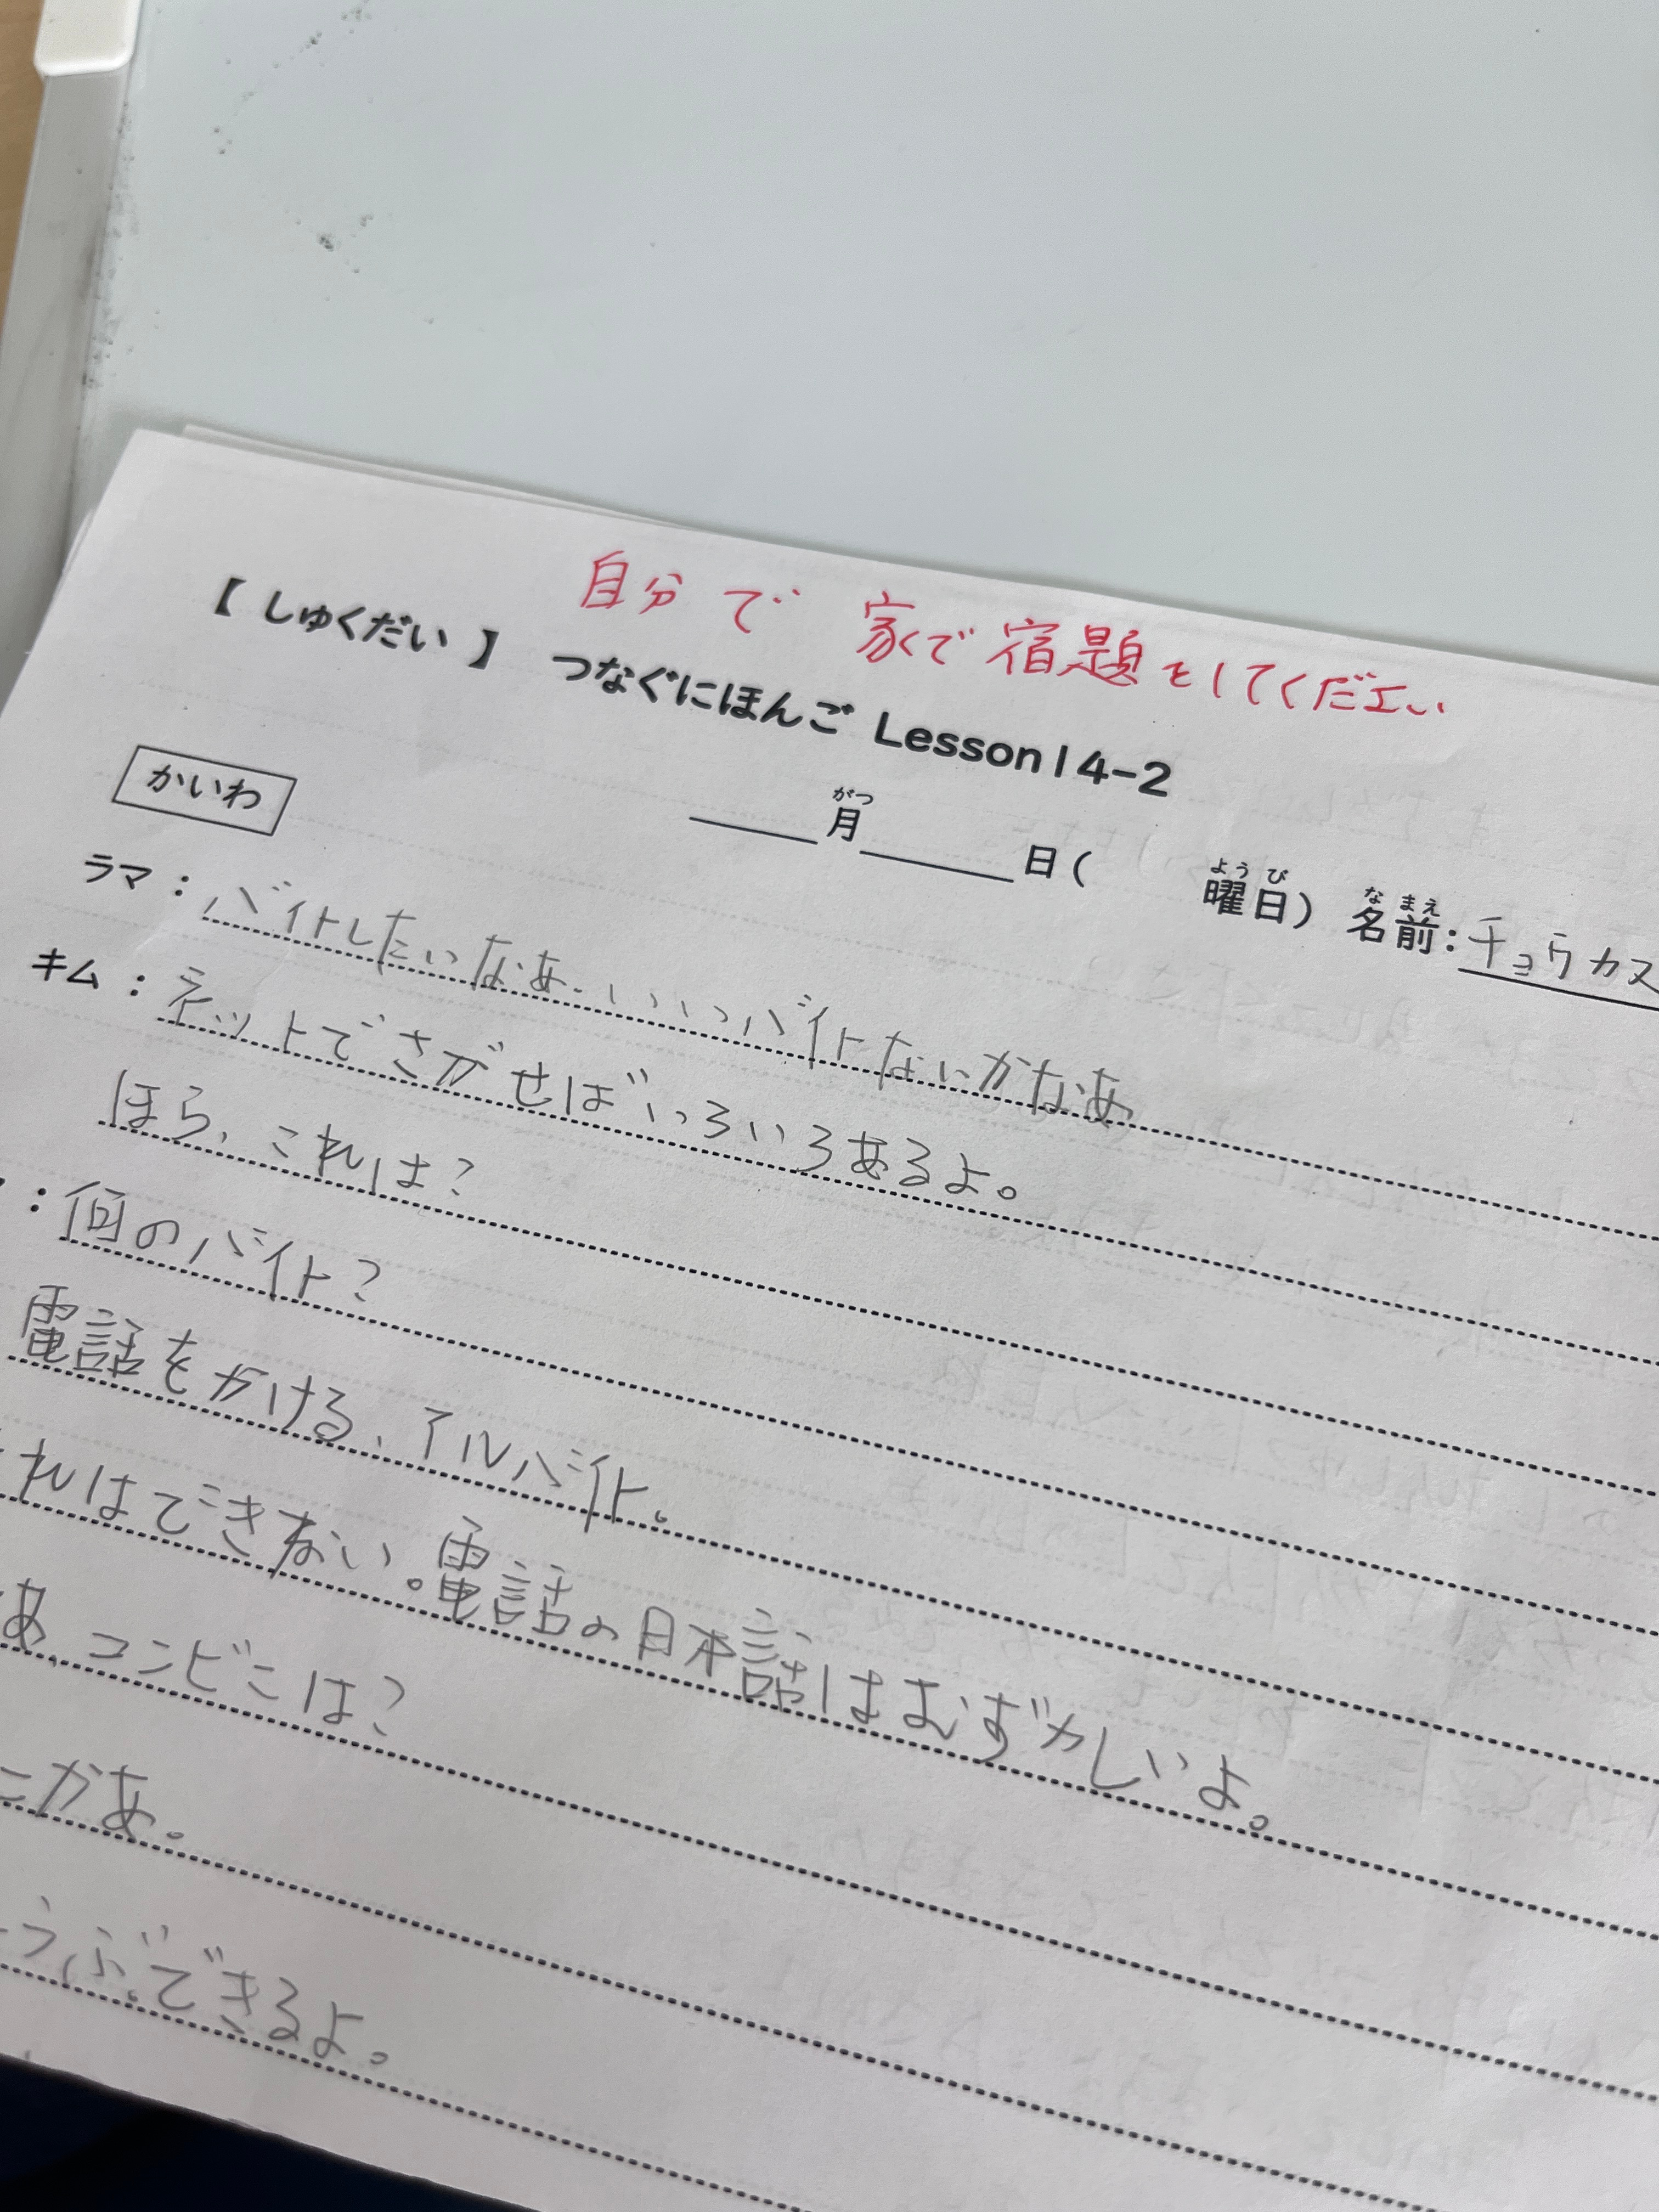 自分で 家で宿題をしてください
【 しゅくだい 】 つなぐにほんご Lesson14-2
かいわ
がつ ようび なまえ
___月___日( 曜日) 名前:チョウカス
ラマ:バイトしたいなあ.いいバイトないかなあ
キム:ネットでさがせばいろいろあるよ。
ほら、これは?
:何のバイト?
電話をかける、アルバイト。
れはできない。電話の日本話はむずかしいよ。
あ、コンビニは?
ニかあ。
うぶできるよ。